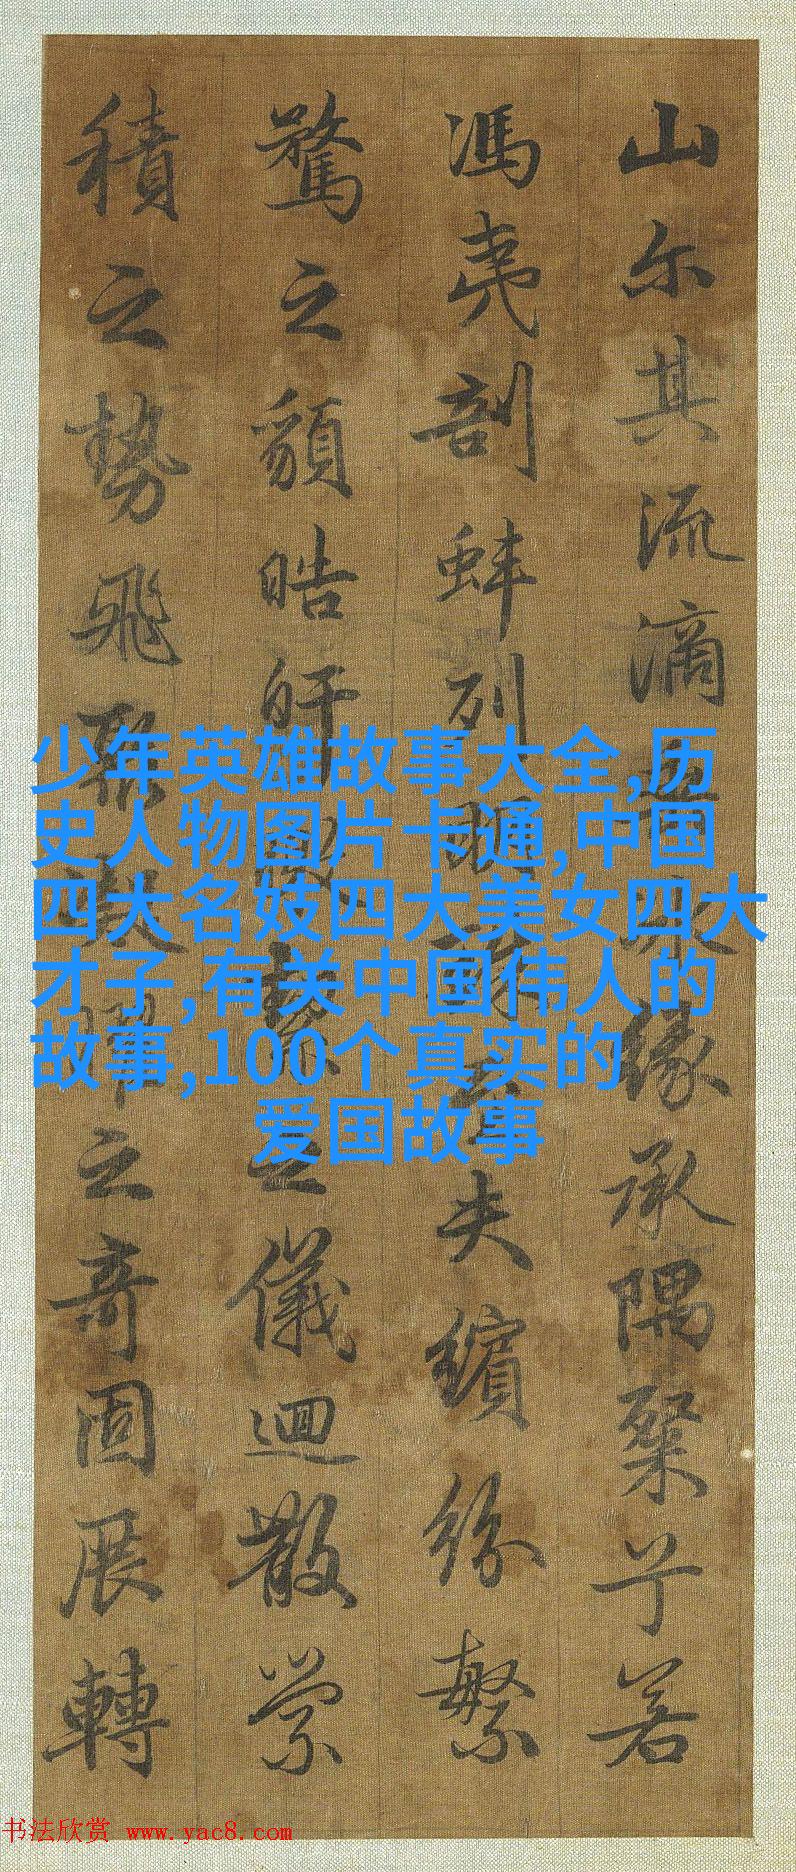 山尔其流滴垂冰緣承隅粲兮若
馮夷剖蚌列明珠至夫繽紛繁
驚之貌皓皔皦潔之儀迴散縈
積之勢飛聚凝曜之奇固展轉
少年英雄故事大全,历
史人物图片卡通,中国
四大名妓四大美女四大
才子,有关中国伟人的
故事,100个真实的
爱国故事
书法欣赏 www.yac8.com